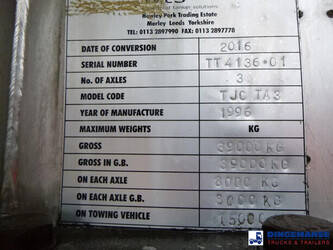 tanker solutions
Howley Park Trading Estate
Morley Leeds Yorkshire
Tel: 0113 2897990 Fax: 0113 2897778
DATE OF CONVERSION 2016
SERIAL NUMBER TT4136-01
No. OF AXLES 3
MODEL CODE TJC TA3
YEAR OF MANUFACTURE 1996
MAXIMUM WEIGHTS KG
GROSS 39000KG
GROSS IN G.B. 39000KG
ON EACH AXLE 8000KG
ON EACH AXLE G.B. 8000KG
ON TOWING VEHICLE 15000
DINGEMANSE
TRUCKS & TRAILERS